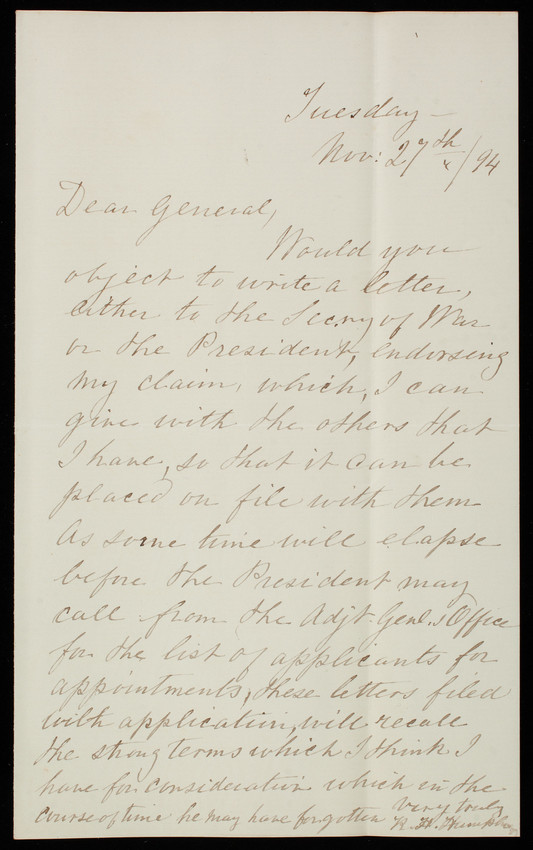 Tuesday –
Nov: 27th/94
Dear General,
Would you
object to write a letter,
either to the Secry of War
or the President, endorsing
my claim, which, I can
give with the others that
I have, so that it can be
placed on file with them
As some time will elapse
before the President may
call from the Adjt. Genl.s Office
for the list of applicants for
appointments, these letters filed
with application, will recall
the strong terms which I think I
have for consideration which in the
course of time he may have forgotten
very truly
R. H.